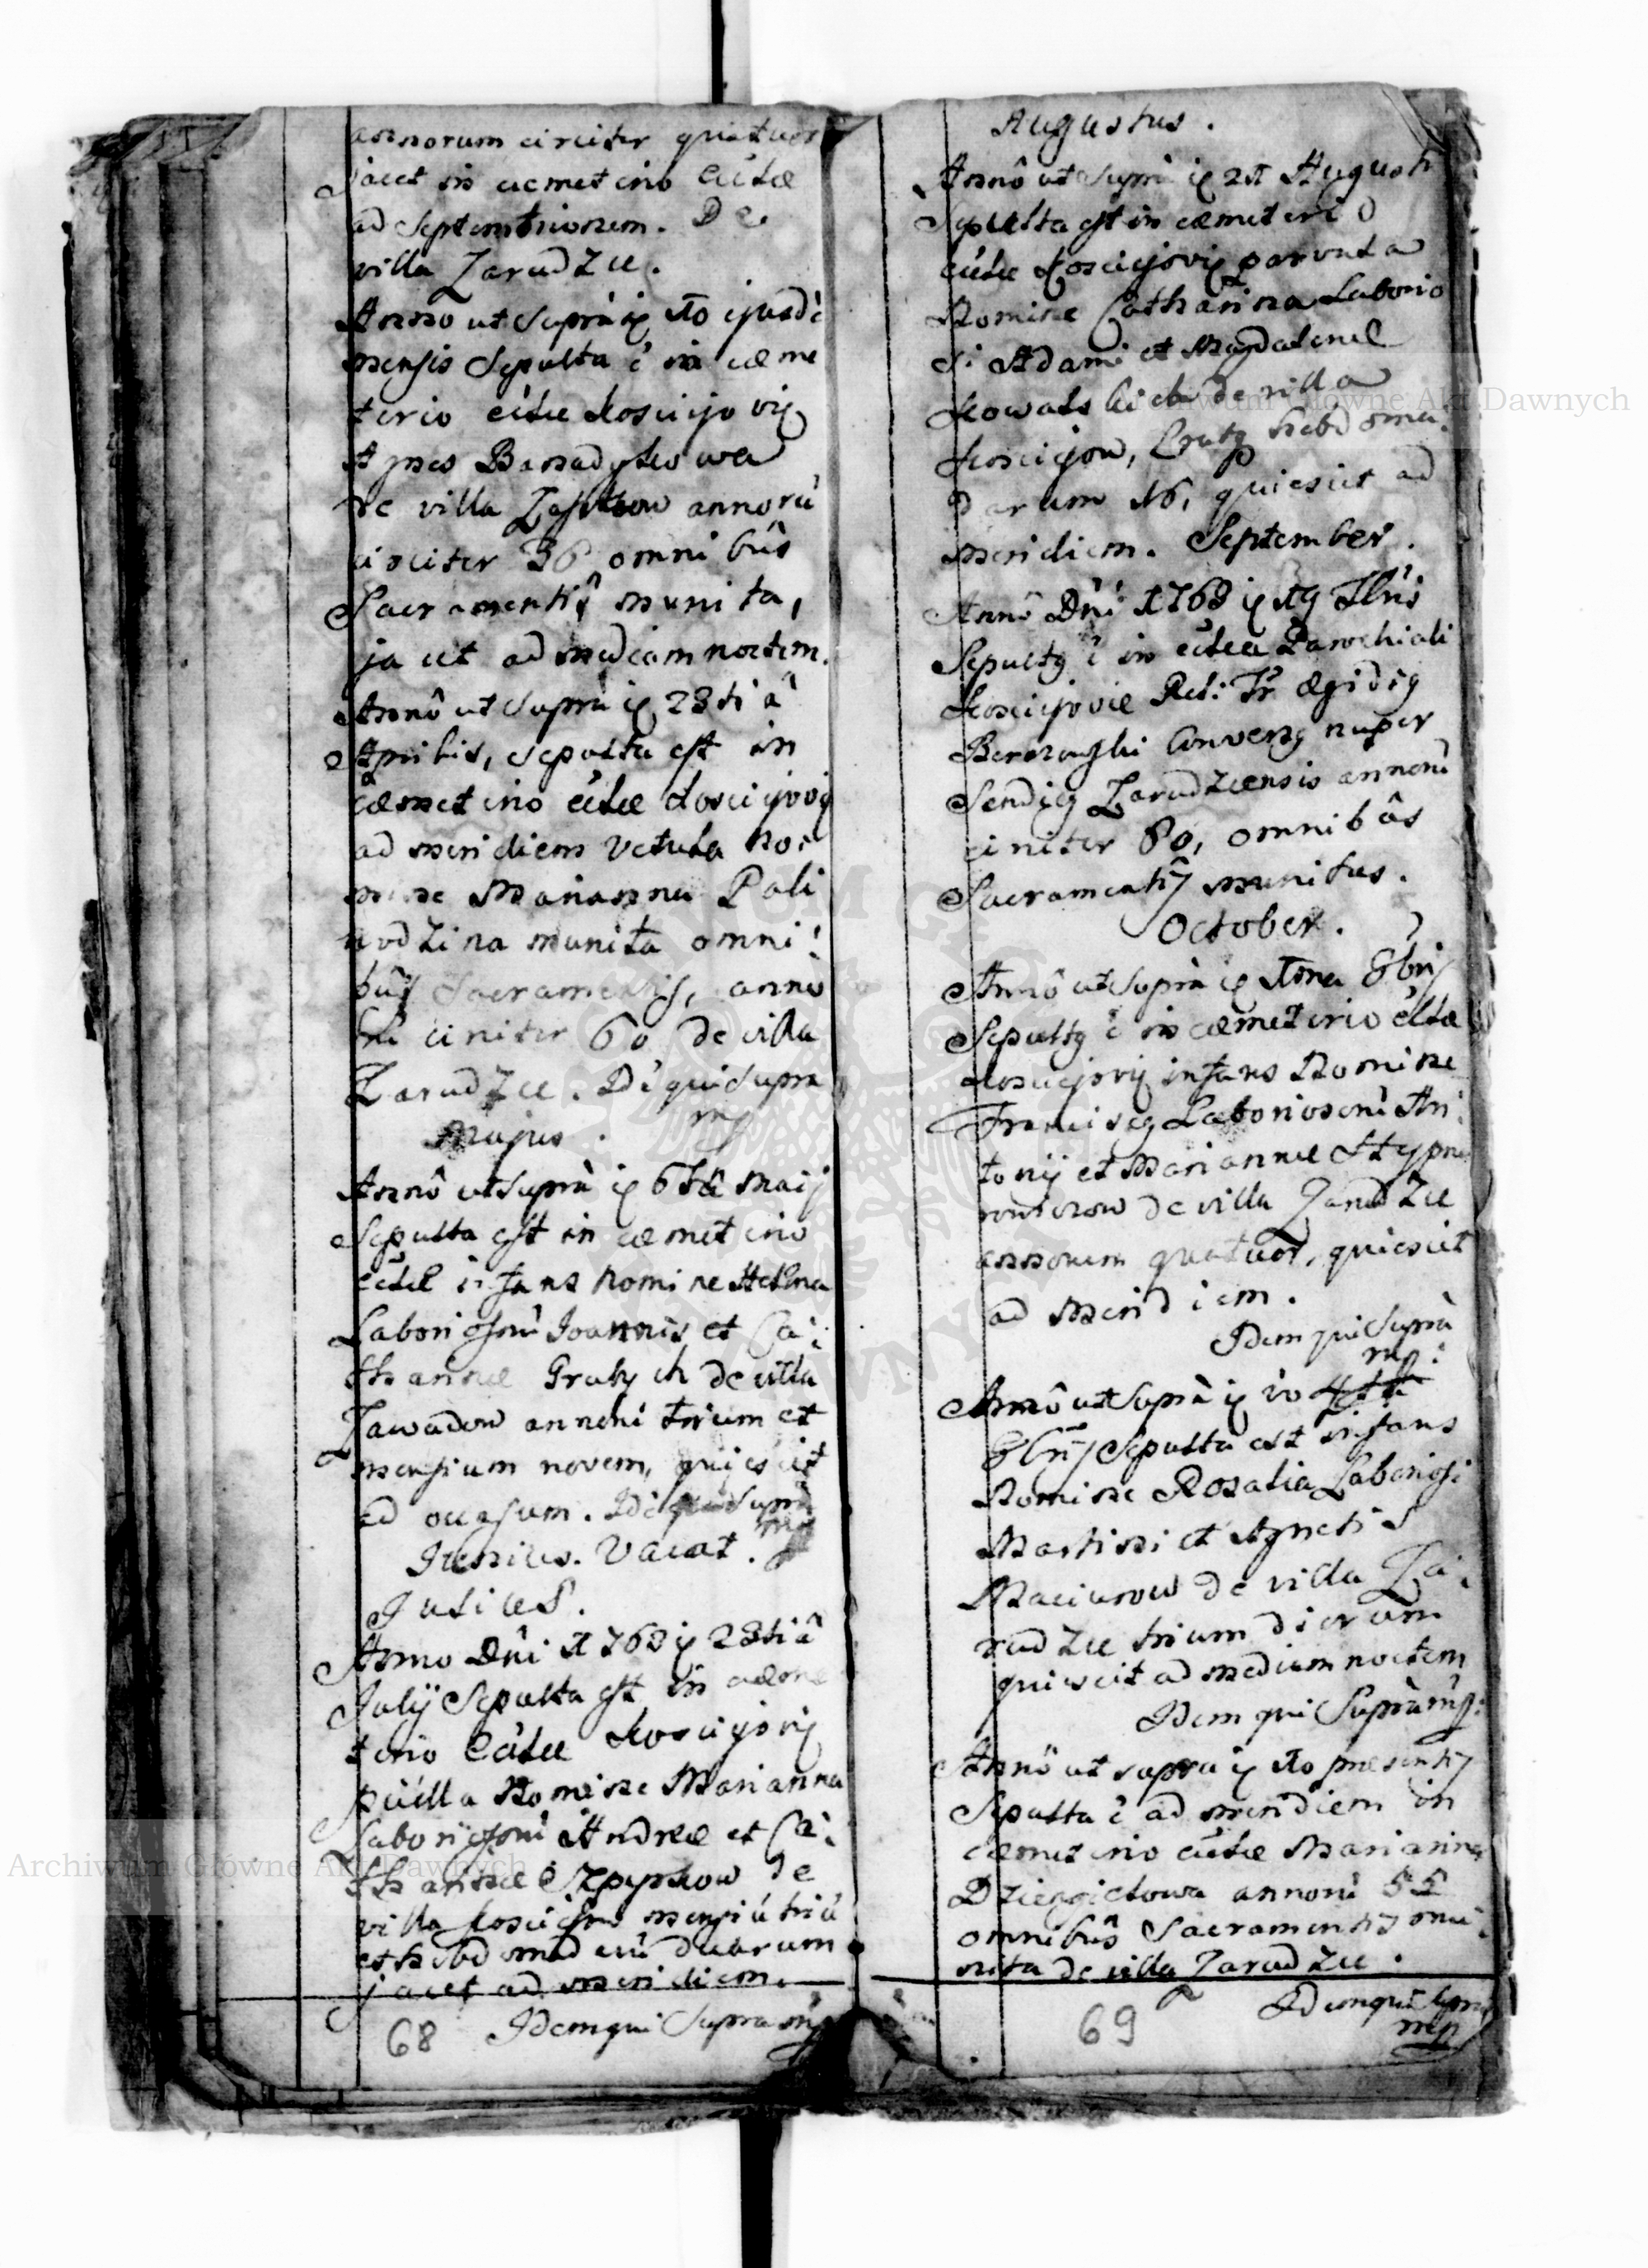 annorum circiter quatuor
jacet in cæmeterio Eccłæ
ad Septemtrionem. De
villa Zarudzie.
Anno ut Supra ię 10 ejusdē
mensis Sepulta ē in cæme
terio eccłæ Kosciejovię
Agnes Banadykowa
de villa annorū
circiter 36 omnibûs
Sacramentis munita,
jacet ad mediam noctem.
Annô ut Supra ię 23tiâ
Aprilis, sepulta est in
cæmeterio eccłæ Kosciejovię
ad meridiem Vetula No:
mine Marianna Pali
wodzina munita omni:
bûs Sacramentis, anno
rū circiter 60 de villa
Zarudzie. Idē qui Supra
mp
Majus.
Annô ut Supra ię 6tâ Maij
Sepulta est in cæmeterio
eccłæ infans Nomine Helena
Laboriosorū Joannis et Ca:
tharinæ Grabych de villa
Zawadow annorū trium et
mensium novem, quiescit
ad occasum. Idē qui Supra
mp
Junius. Vacat.
Julius.
Anno Dñi 1763 ię 23tiâ
Julij Sepulta est in cæme
terio Eccłæ Kosciejovię
puella Nomine Marianna
Laboriosorū Andreæ et Ca:
tharinæ de
villa Kosciejow mensiū triū
et hebdomadarū duarum
jacet ad meridiem.
Idem qui Supra mp
68
Augustus.
Annô ut Supra ię 21 Augusti
Sepulta est in cæmeterio
eccłæ Kosciejovię parvula
Nomine Catharina Laborio
si Adami et Magdalenæ
Kowalskich de villa
Kosciejow, hebdoma:
darum 16, quiescit ad
meridiem. September.
Annô Dñi 1763 ię 19 7bris
Sepultę ē in eccła Parochiali
Kosciejoviæ Rel: Fr. Ægidię
Conversę nuper
Zarudziensis annorū
circiter 80, omnibûs
Sacramentis munitus.
October.
Annô ut Supra ię 8bris
Sepultę ē in cæmeterio eccłæ
Kosciejovię infans Nomine
Franciscę Laboriosorū An:
tonij et Mariannæ
de villa Zarudzie
annorum quatuor, quiescit
ad Meridiem.
Idem qui Supra
mp:
Annô ut Supra ię
8bris Sepulta est infans
Nomine Rosalia Laboriosi
Martini et Agnetis
Maciurow de villa Za:
rudzie trium dierum
quiescit ad mediam noctem
Idem qui Supra mp:
Annô ut supra ię 10 præsentis
Sepulta ē ad meridiem in
cæmeterio eccłæ Marianna
annorū 55
omnibûs Sacramentis mu:
nita de villa Zarudzie.
Idem qui Supra
mp
69
Archiwum Główne Akt Dawnych
Archiwum Główne Akt Dawnych